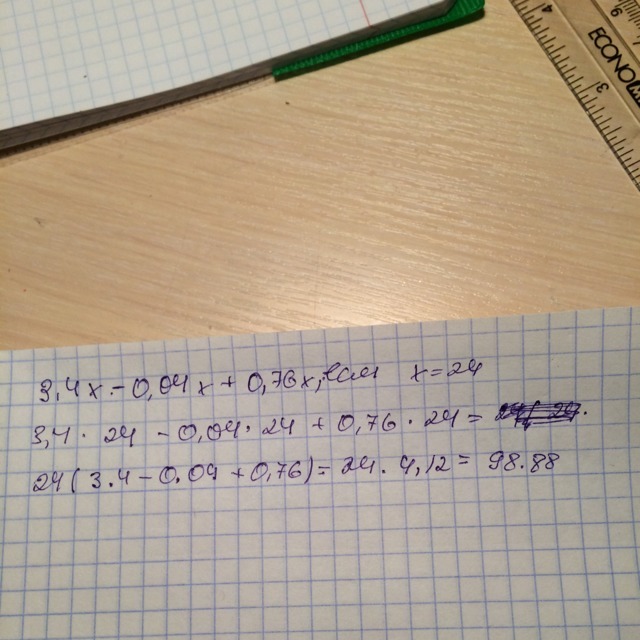 4
3
9
ECONO
3,4x - 0,04x + 0,76x, если x=24
3,4 · 24 - 0,04 · 24 + 0,76 · 24 =
24(3.4 - 0.04 + 0,76) = 24 · 4,12 = 98.88